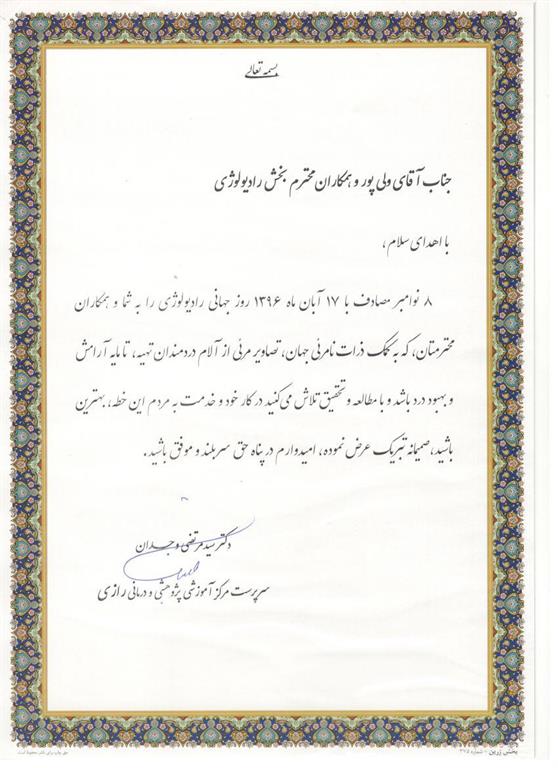 بسمه تعالی
جناب آقای ولی پور و همکاران محترم بخش رادیولوژی
با اهدای سلام ،
۸ نوامبر مصادف با ۱۷ آبان ماه ۱۳۹۶ روز جهانی رادیولوژی را به شما و همکاران
محترمتان، که به کمک ذرات نامرئی جهان، تصاویر مرئی از آلام دردمندان تهیه، تا مایه آرامش
و بهبود درد باشد و با مطالعه و تحقیق تلاش می‌کنید در کار خود و خدمت به مردم این خطه، بهترین
باشید، صمیمانه تبریک عرض نموده، امیدوارم در پناه حق سربلند و موفق باشید.
دکتر سید مرتضی وجدان
سرپرست مرکز آموزشی پژوهشی و درمانی رازی
پخش زرین - شماره ۳۷۵
حق چاپ برای ناشر محفوظ است